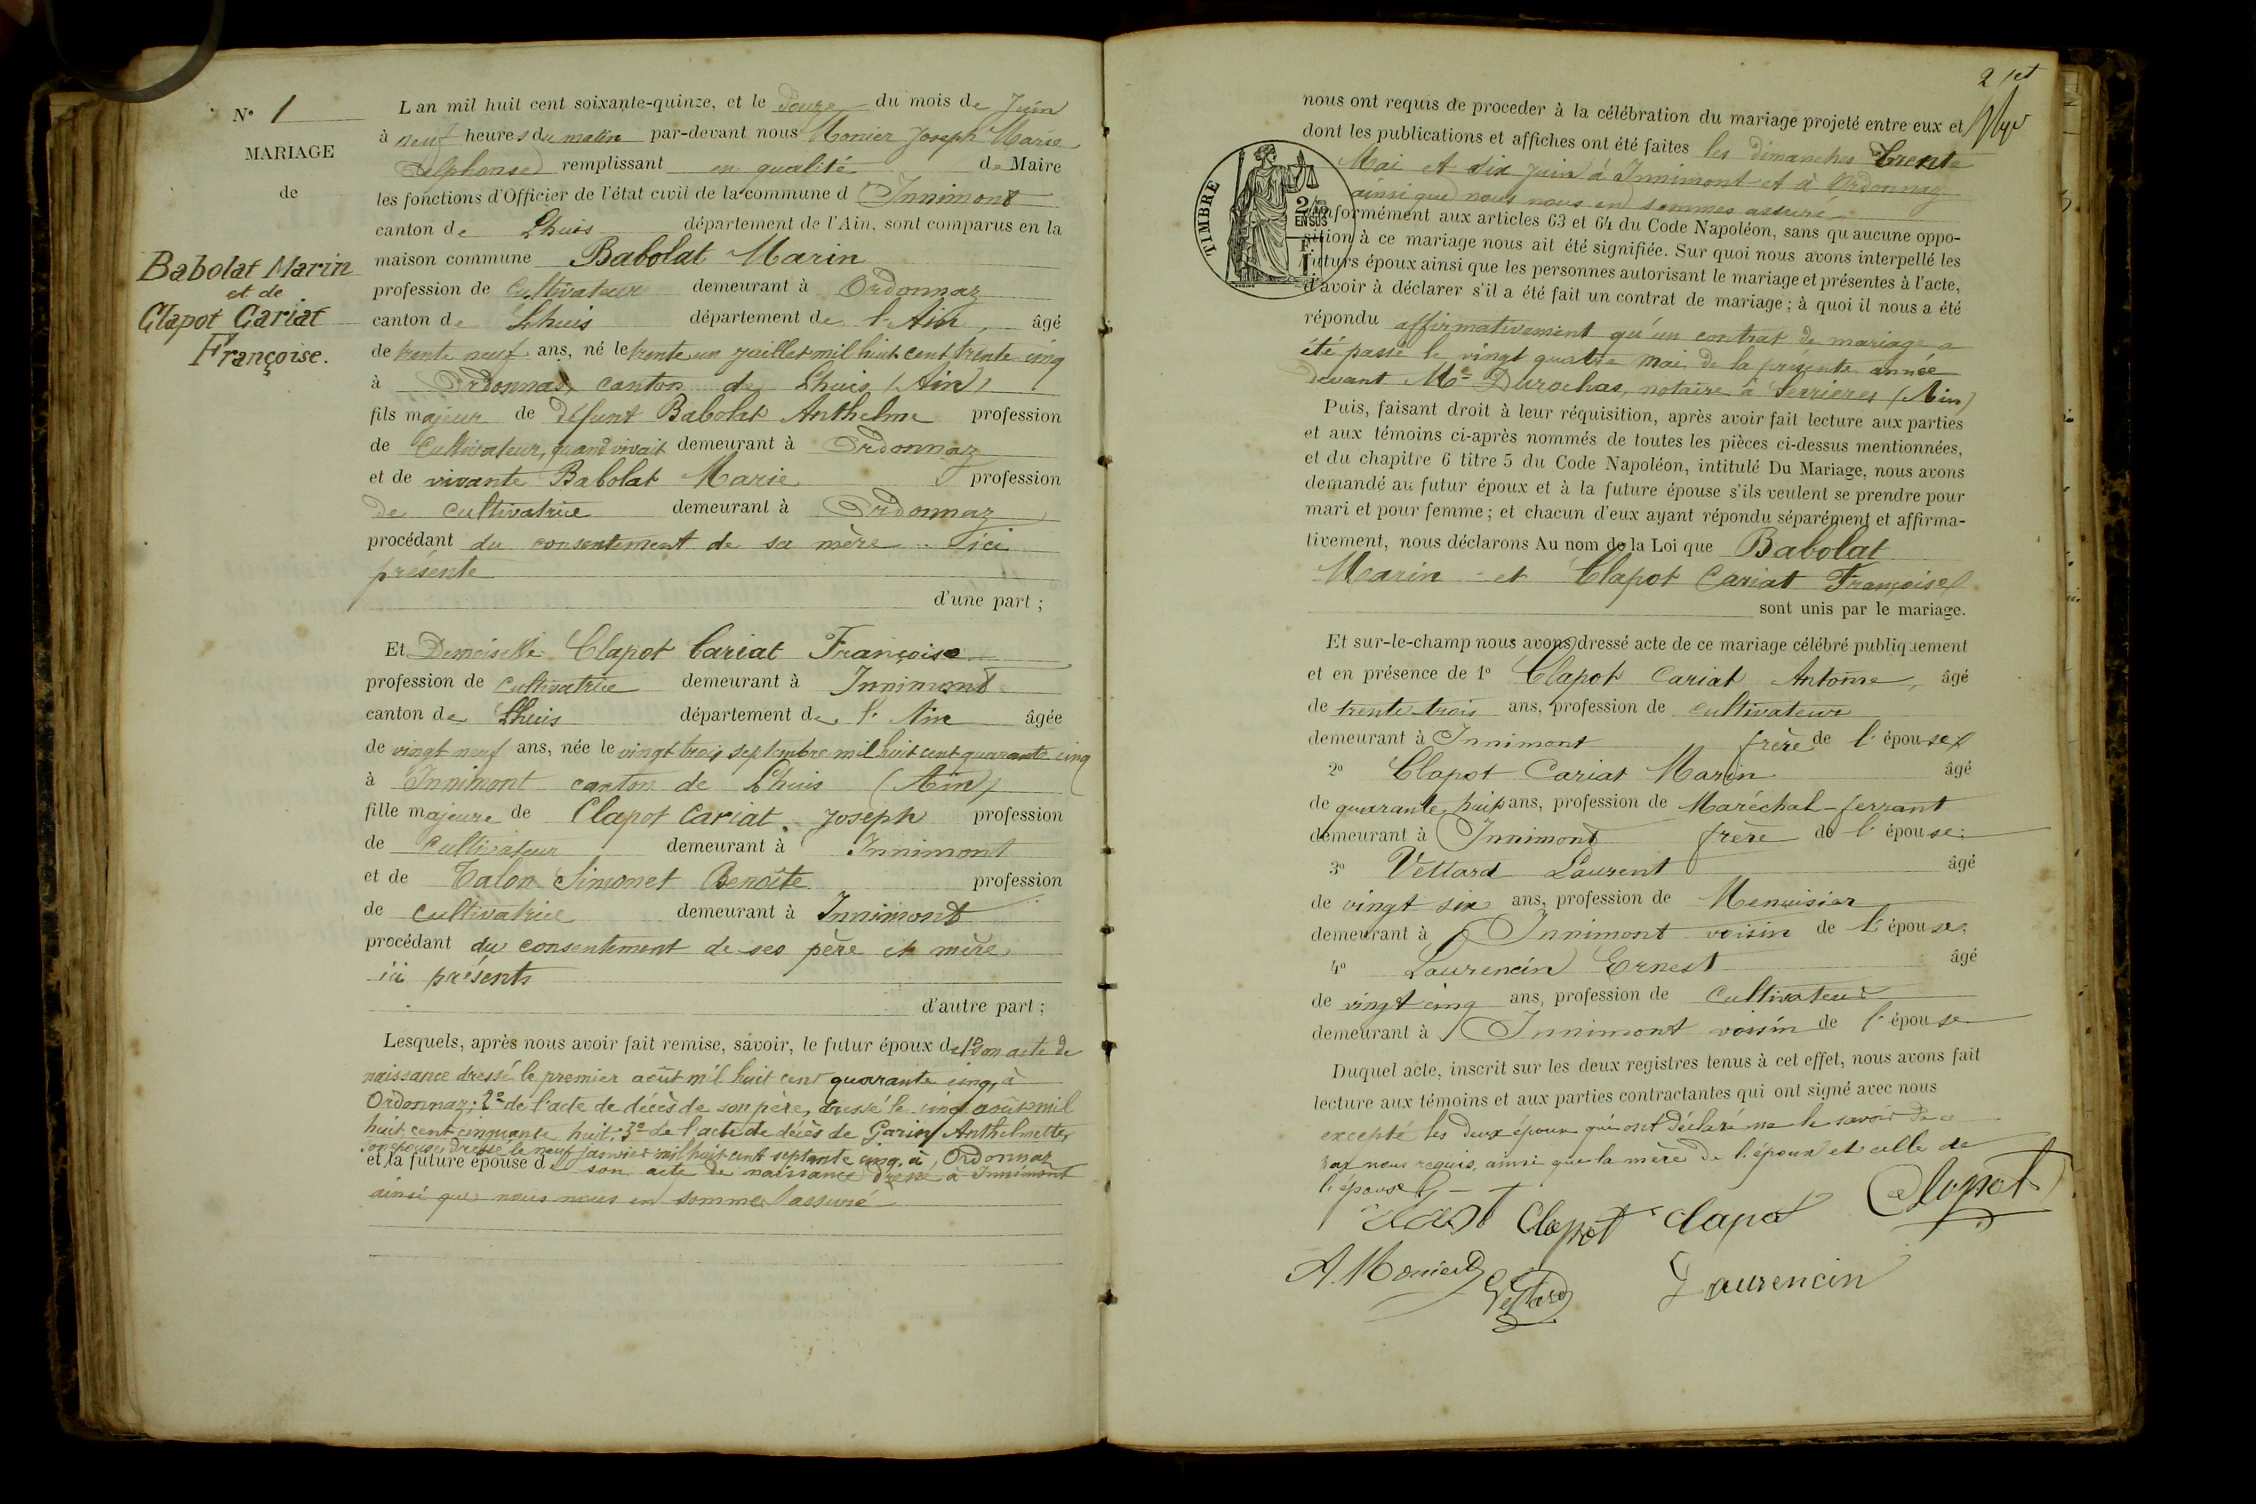 N° 1
MARIAGE
de
Babolat Marin
et de
Clapot Cariat
Françoise.
L an mil huit cent soixante-quinze, et le douze du mois de Juin
à neuf heures du matin par-devant nous Monier Joseph Marie
Alphonse remplissant en qualité de Maire
les fonctions d'Officier de l'état civil de la commune d'Innimont
canton de Lhuis département de l'Ain, sont comparus en la
maison commune Babolat Marin
profession de Cultivateur demeurant à Ordonnaz
canton de Lhuis département de l'Ain, âgé
de trente neuf ans, né le trente un juillet mil huit cent trente cinq
à Ordonnaz, canton de Lhuis (Ain)
fils majeur de défunt Babolat Anthelme profession
de Cultivateur, quand vivait demeurant à Ordonnaz
et de vivante Babolat Marie profession
de cultivatrice demeurant à Ordonnaz
procédant du consentement de sa mère ici
présente
d'une part ;
Et Demoiselle Clapot Cariat Françoise
profession de cultivatrice demeurant à Innimont
canton de Lhuis département de l'Ain âgée
de vingt neuf ans, née le vingt trois septembre mil huit cent quarante cinq
à Innimont canton de Lhuis (Ain)
fille majeure de Clapot Cariat Joseph profession
de Cultivateur demeurant à Innimont
et de Talon Simonet Benoîte profession
de cultivatrice demeurant à Innimont
procédant du consentement de ses père et mère
ici présents
d'autre part ;
Lesquels, après nous avoir fait remise, savoir, le futur époux de 1° son acte de
naissance dressé le premier août mil huit cent quarante cinq, à
Ordonnaz; 2° de l'acte de décès de son père, dressé le cinq août mil
huit cent cinquante huit; 3° de l'acte de décès de Garin Anthelmette,
son épouse, dressé le neuf janvier mil huit cent septante cinq, à Ordonnaz
et la future épouse de son acte de naissance dressé à Innimont
ainsi que nous nous en sommes assuré
2
nous ont requis de proceder à la célébration du mariage projeté entre eux et
dont les publications et affiches ont été faites les dimanches trente
Mai et six juin à Innimont et à Ordonnaz
ainsi que nous nous en sommes assuré
TIMBRE
2/10
EN SUS
conformément aux articles 63 et 64 du Code Napoléon, sans qu'aucune oppo-
sition à ce mariage nous ait été signifiée. Sur quoi nous avons interpellé les
futurs époux ainsi que les personnes autorisant le mariage et présentes à l'acte,
d'avoir à déclarer s'il a été fait un contrat de mariage ; à quoi il nous a été
répondu affirmativement qu'un contrat de mariage a
été passé le vingt quatre mai de la présente année
devant Me Durochas, notaire à Serrieres (Ain)
Puis, faisant droit à leur réquisition, après avoir fait lecture aux parties
et aux témoins ci-après nommés de toutes les pièces ci-dessus mentionnées,
et du chapitre 6 titre 5 du Code Napoléon, intitulé Du Mariage, nous avons
demandé au futur époux et à la future épouse s'ils veulent se prendre pour
mari et pour femme ; et chacun d'eux ayant répondu séparément et affirma-
tivement, nous déclarons Au nom de la Loi que Babolat
Marin et Clapot Cariat Françoise
sont unis par le mariage.
Et sur-le-champ nous avons dressé acte de ce mariage célébré publiquement
et en présence de 1° Clapot Cariat Antoine, âgé
de trente trois ans, profession de cultivateur
demeurant à Innimont frère de l'épouse
2° Clapot Cariat Marin âgé
de quarante huit ans, profession de Maréchal-ferrant
demeurant à Innimont frère de l'épouse
3° Vettard Laurent âgé
de vingt six ans, profession de Menuisier
demeurant à Innimont voisin de l'épouse
4° Laurencin Ernest âgé
de vingt cinq ans, profession de cultivateur
demeurant à Innimont voisin de l'épouse
Duquel acte, inscrit sur les deux registres tenus à cet effet, nous avons fait
lecture aux témoins et aux parties contractantes qui ont signé avec nous
excepté les deux époux qui ont déclaré ne le savoir de ce
par nous requis, ainsi que la mère de l'époux et celle de
l'épouse
Clapot Clapot Clapot
A. Monier Vettard Laurencin